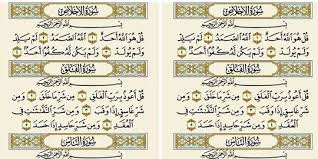 سُورَةُ الإِخْلَاصِ
بِسْمِ اللَّهِ الرَّحْمَٰنِ الرَّحِيمِ
قُلْ هُوَ اللَّهُ أَحَدٌ ۝ اللَّهُ الصَّمَدُ ۝ لَمْ يَلِدْ
وَلَمْ يُولَدْ ۝ وَلَمْ يَكُن لَّهُ كُفُوًا أَحَدٌ ۝
سُورَةُ الفَلَقِ
بِسْمِ اللَّهِ الرَّحْمَٰنِ الرَّحِيمِ
قُلْ أَعُوذُ بِرَبِّ الْفَلَقِ ۝ مِن شَرِّ مَا خَلَقَ ۝ وَمِن
شَرِّ غَاسِقٍ إِذَا وَقَبَ ۝ وَمِن شَرِّ النَّفَّٰثَٰتِ فِي
الْعُقَدِ ۝ وَمِن شَرِّ حَاسِدٍ إِذَا حَسَدَ ۝
سُورَةُ النَّاسِ
سُورَةُ الإِخْلَاصِ
بِسْمِ اللَّهِ الرَّحْمَٰنِ الرَّحِيمِ
قُلْ هُوَ اللَّهُ أَحَدٌ ۝ اللَّهُ الصَّمَدُ ۝ لَمْ يَلِدْ
وَلَمْ يُولَدْ ۝ وَلَمْ يَكُن لَّهُ كُفُوًا أَحَدٌ ۝
سُورَةُ الفَلَقِ
بِسْمِ اللَّهِ الرَّحْمَٰنِ الرَّحِيمِ
قُلْ أَعُوذُ بِرَبِّ الْفَلَقِ ۝ مِن شَرِّ مَا خَلَقَ ۝ وَمِن
شَرِّ غَاسِقٍ إِذَا وَقَبَ ۝ وَمِن شَرِّ النَّفَّٰثَٰتِ فِي
الْعُقَدِ ۝ وَمِن شَرِّ حَاسِدٍ إِذَا حَسَدَ ۝
سُورَةُ النَّاسِ